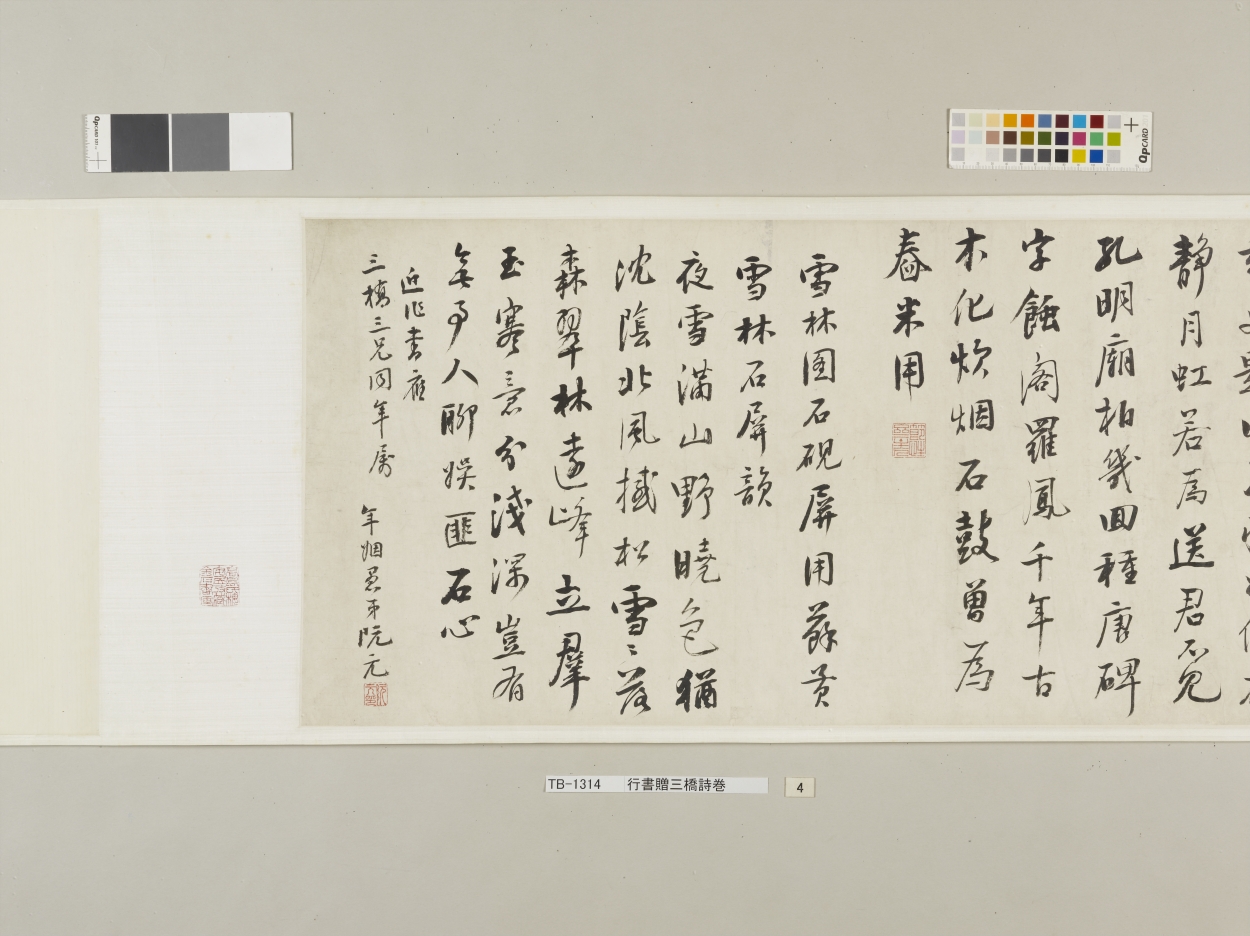 静月虹若為送君不覓
孔明廟柏幾回種唐碑
字蝕閣羅鳳千年古
木化炊烟石鼓曾為
舂米用
雪林圖石硯屏用蘇黄
雪林石屏韻
夜雪滿山野曉色猶
沈陰北風撼松雪〻落
森翠林遠峰立羣
玉寒意分淺深豈有
無事人聊娛匪石心
近作書應
三橋三兄同年屬 年姻愚弟阮元
TB-1314 行書贈三橋詩巻 4
QPCARD
QPCARD